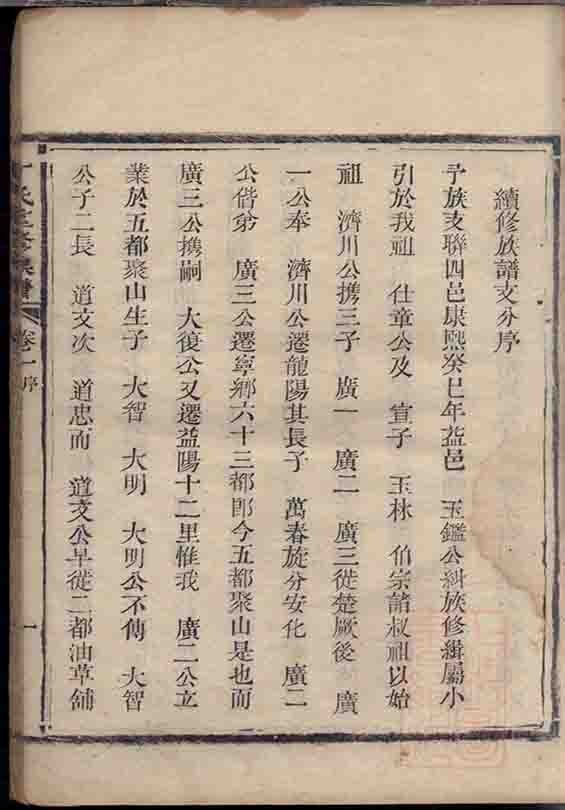 續修族譜支分序
予族支聯四邑康熙癸巳年益邑 玉鑑公糾族修緝屬小
引於我祖 仕章公及 宣子 玉林 伯宗諸叔祖以始
祖 濟川公攜三子 廣一 廣二 廣三徙楚厥後 廣
一公奉 濟川公遷龍陽其長子 萬春旋分安化 廣二
公偕弟 廣三公遷寧鄉六十三都卽今五都聚山是也而
廣三公攜嗣 大復公又遷益陽十二里惟我 廣二公立
業於五都聚山生子 大智 大明 大明公不傳 大智
公子二長 道文次 道忠而 道文公早徙二都油草舖
氏
修族譜
卷一
序
一